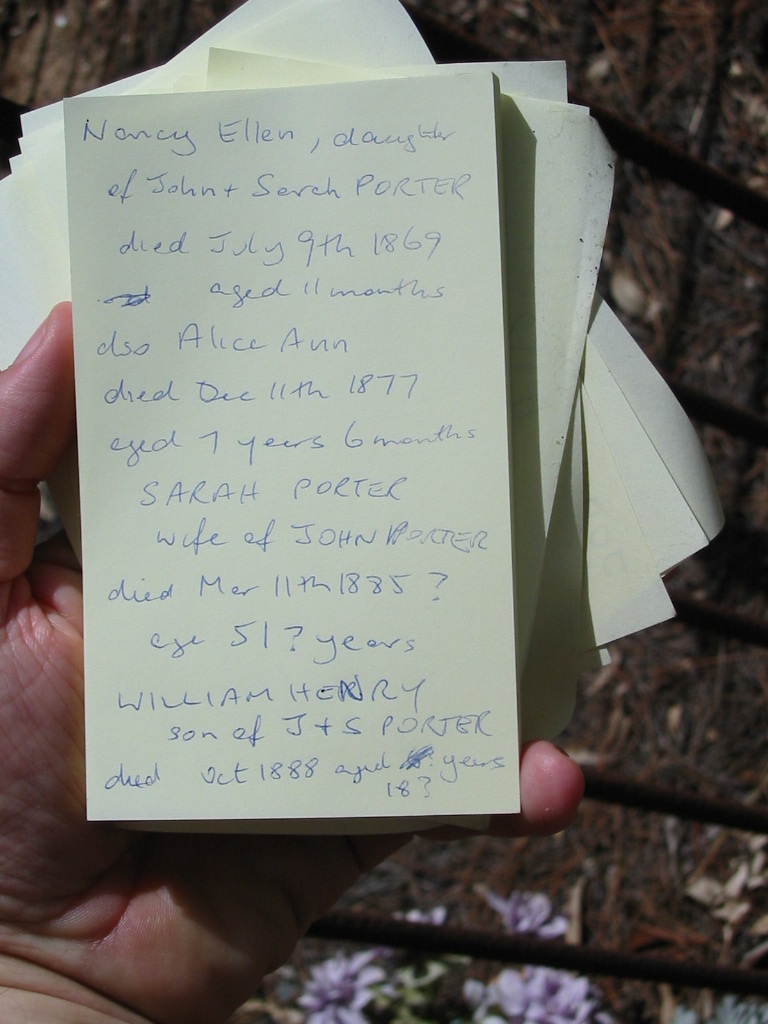 Nancy Ellen, daughter
of John + Sarah PORTER
died July 9th 1869
aged 11 months
also Alice Ann
died Dec 11th 1877
aged 7 years 6 months
SARAH PORTER
wife of JOHN PORTER
died Mar 11th 1885 ?
age 51 ? years
WILLIAM HENRY
son of J + S PORTER
died Oct 1888 aged years
18?